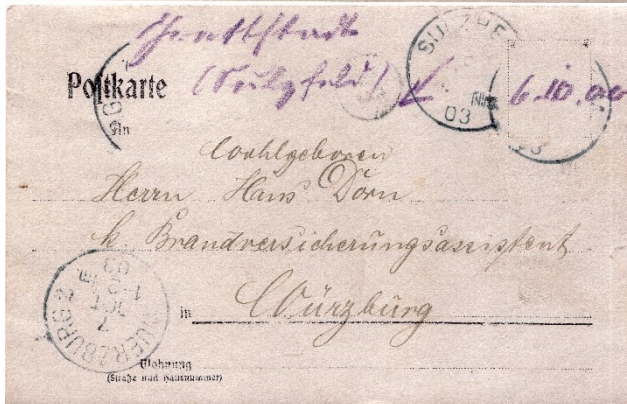 Postkarte
6.10.00
SULZHE
03
An
Wohlgeboren
Herrn Hans Dorn
k. Brandversicherungsassistent
in Würzburg
WUERZBURG 2
7
OCT
03
Wohnung
(Straße und Hausnummer)